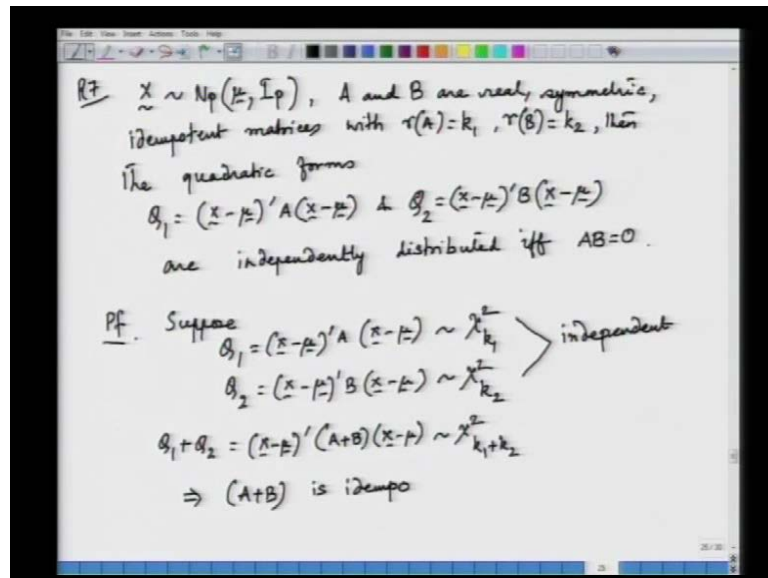 File Edit View Insert Actions Tools Help
R7 x ~ Np(μ, Ip), A and B are real, symmetric,
idempotent matrices with r(A)=k₁, r(B)=k₂, then
The quadratic forms
Q₁ = (x-μ)'A(x-μ) & Q₂ = (x-μ)'B(x-μ)
are independently distributed iff AB=0.
Pf. Suppose
Q₁ = (x-μ)'A (x-μ) ~ χ²k₁
independent
Q₂ = (x-μ)'B (x-μ) ~ χ²k₂
Q₁+Q₂ = (x-μ)'(A+B)(x-μ) ~ χ²k₁+k₂
⇒ (A+B) is idempo
25/30
25